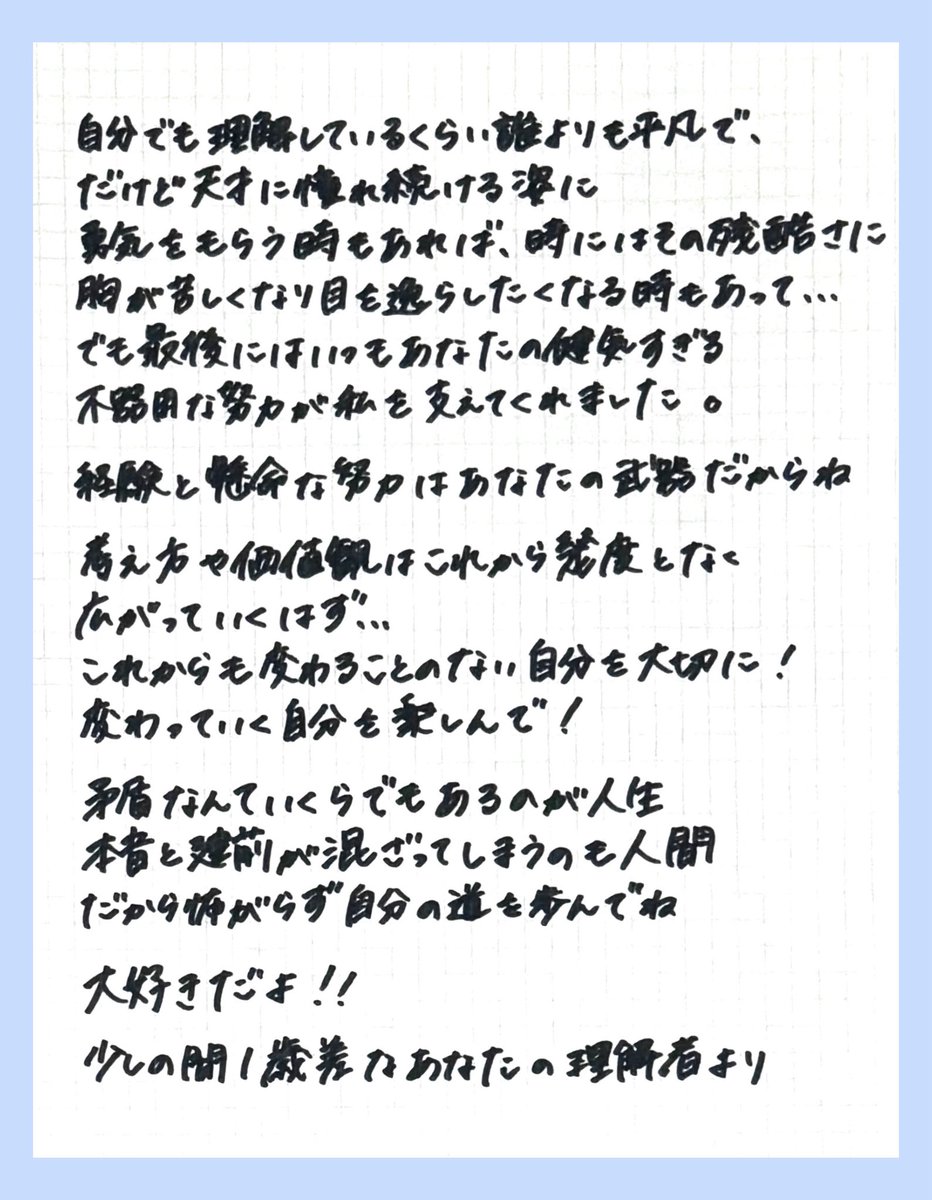 自分でも理解しているくらい誰よりも平凡で、
だけど天才に憧れ続ける姿に
勇気をもらう時もあれば、時にはその残酷さに
胸が苦しくなり目を逸らしたくなる時もあって...
でも最後にはいつもあなたの健気すぎる
不器用な努力が私を支えてくれました。
経験と懸命な努力はあなたの武器だからね
考え方や価値観はこれから幾度となく
広がっていくはず...
これからも変わることのない自分を大切に!
変わっていく自分を楽しんで!
矛盾なんていくらでもあるのが人生
本音と建前が混ざってしまうのも人間
だから怖がらず自分の道を歩んでね
大好きだよ!!
少しの間1歳差なあなたの理解者より